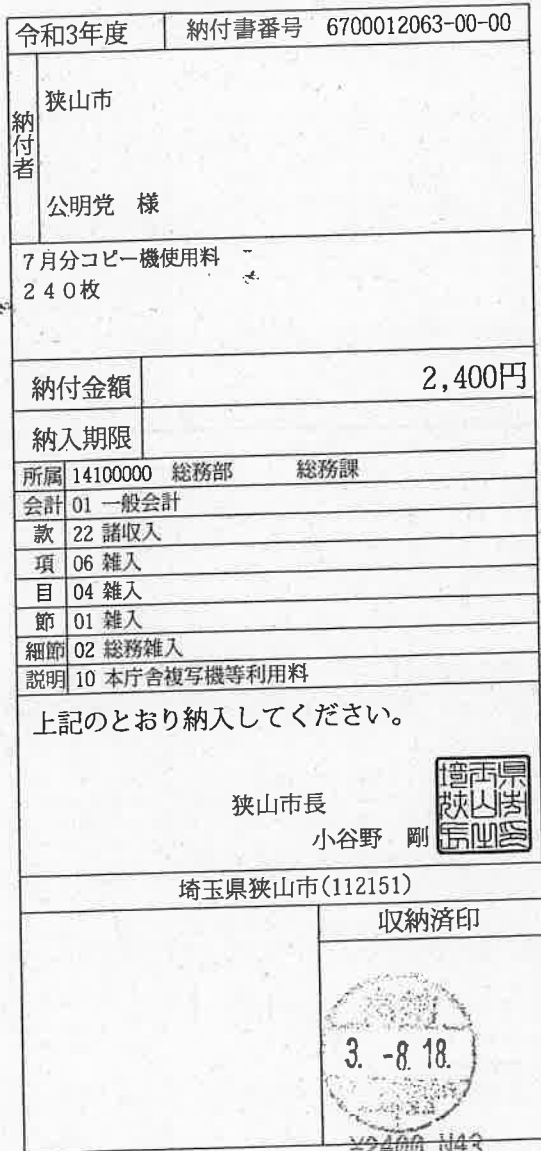 令和3年度 納付書番号 6700012063-00-00
納付者
狭山市
公明党 様
7月分コピー機使用料
240枚
納付金額 2,400円
納入期限
所属 14100000 総務部 総務課
会計 01 一般会計
款 22 諸収入
項 06 雑入
目 04 雑入
節 01 雑入
細節 02 総務雑入
説明 10 本庁舎複写機等利用料
上記のとおり納入してください。
狭山市長
小谷野 剛
埼玉県狭山市(112151)
収納済印
3. -8. 18.
¥2400 N43